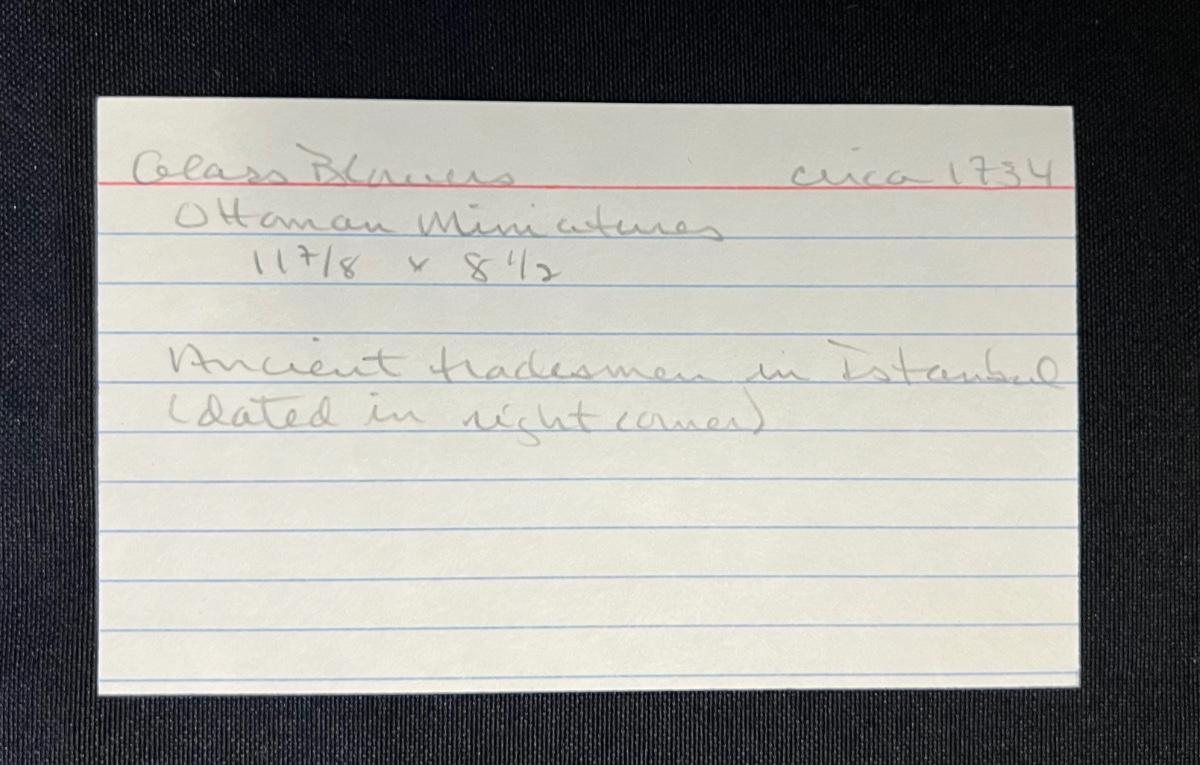 Glass Blowers circa 1734
Ottoman Miniatures
11 7/8 x 8 1/2
Ancient tradesmen in Istanbul
(dated in right corner)